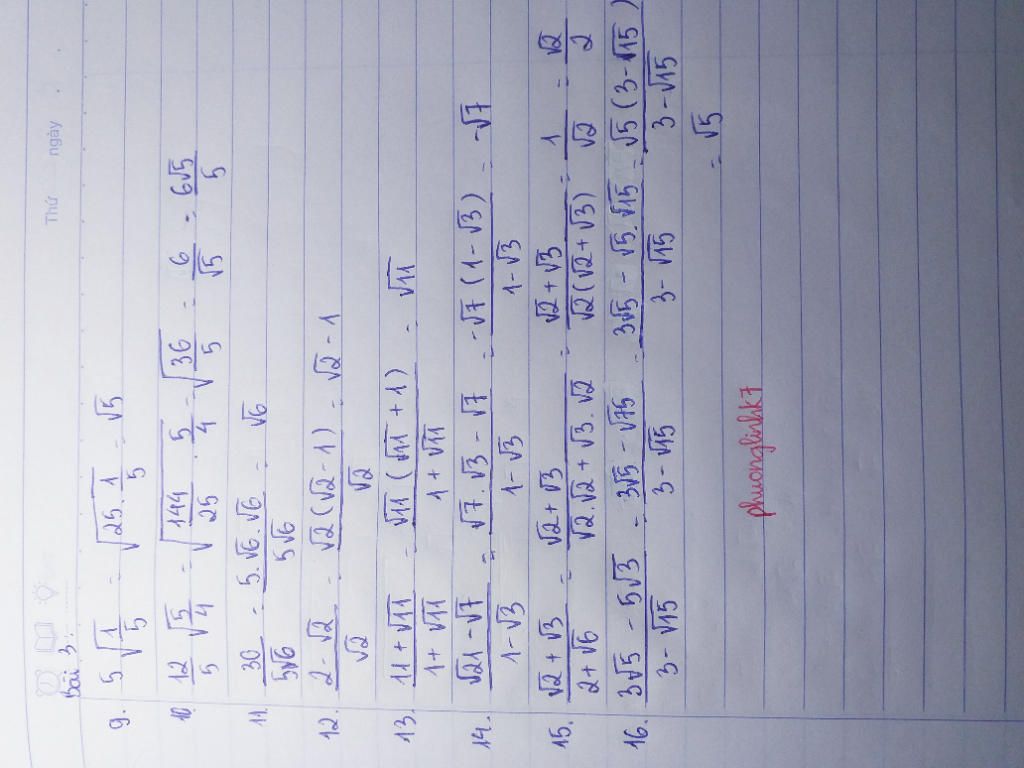 Thứ ngày
Bài 3:
9. 5√(1/5) = √(25 . 1/5) = √5
10. 12/5 √(5/4) = √(144/25 . 5/4) = √(36/5) = 6/√5 = 6√5/5
11. 30/5√6 = 5.√6.√6/5√6 = √6
12. (2 - √2)/√2 = √2(√2 - 1)/√2 = √2 - 1
13. (11 + √11)/(1 + √11) = √11(√11 + 1)/(1 + √11) = √11
14. (√21 - √7)/(1 - √3) = (√7 . √3 - √7)/(1 - √3) = -√7(1 - √3)/(1 - √3) = -√7
15. (√2 + √3)/(2 + √6) = (√2 + √3)/(√2.√2 + √3.√2) = (√2 + √3)/(√2(√2 + √3)) = 1/√2 = √2/2
16. (3√5 - 5√3)/(3 - √15) = (3√5 - √75)/(3 - √15) = (3√5 - √5.√15)/(3 - √15) = √5(3 - √15)/(3 - √15)
= √5
phuonglinhk7